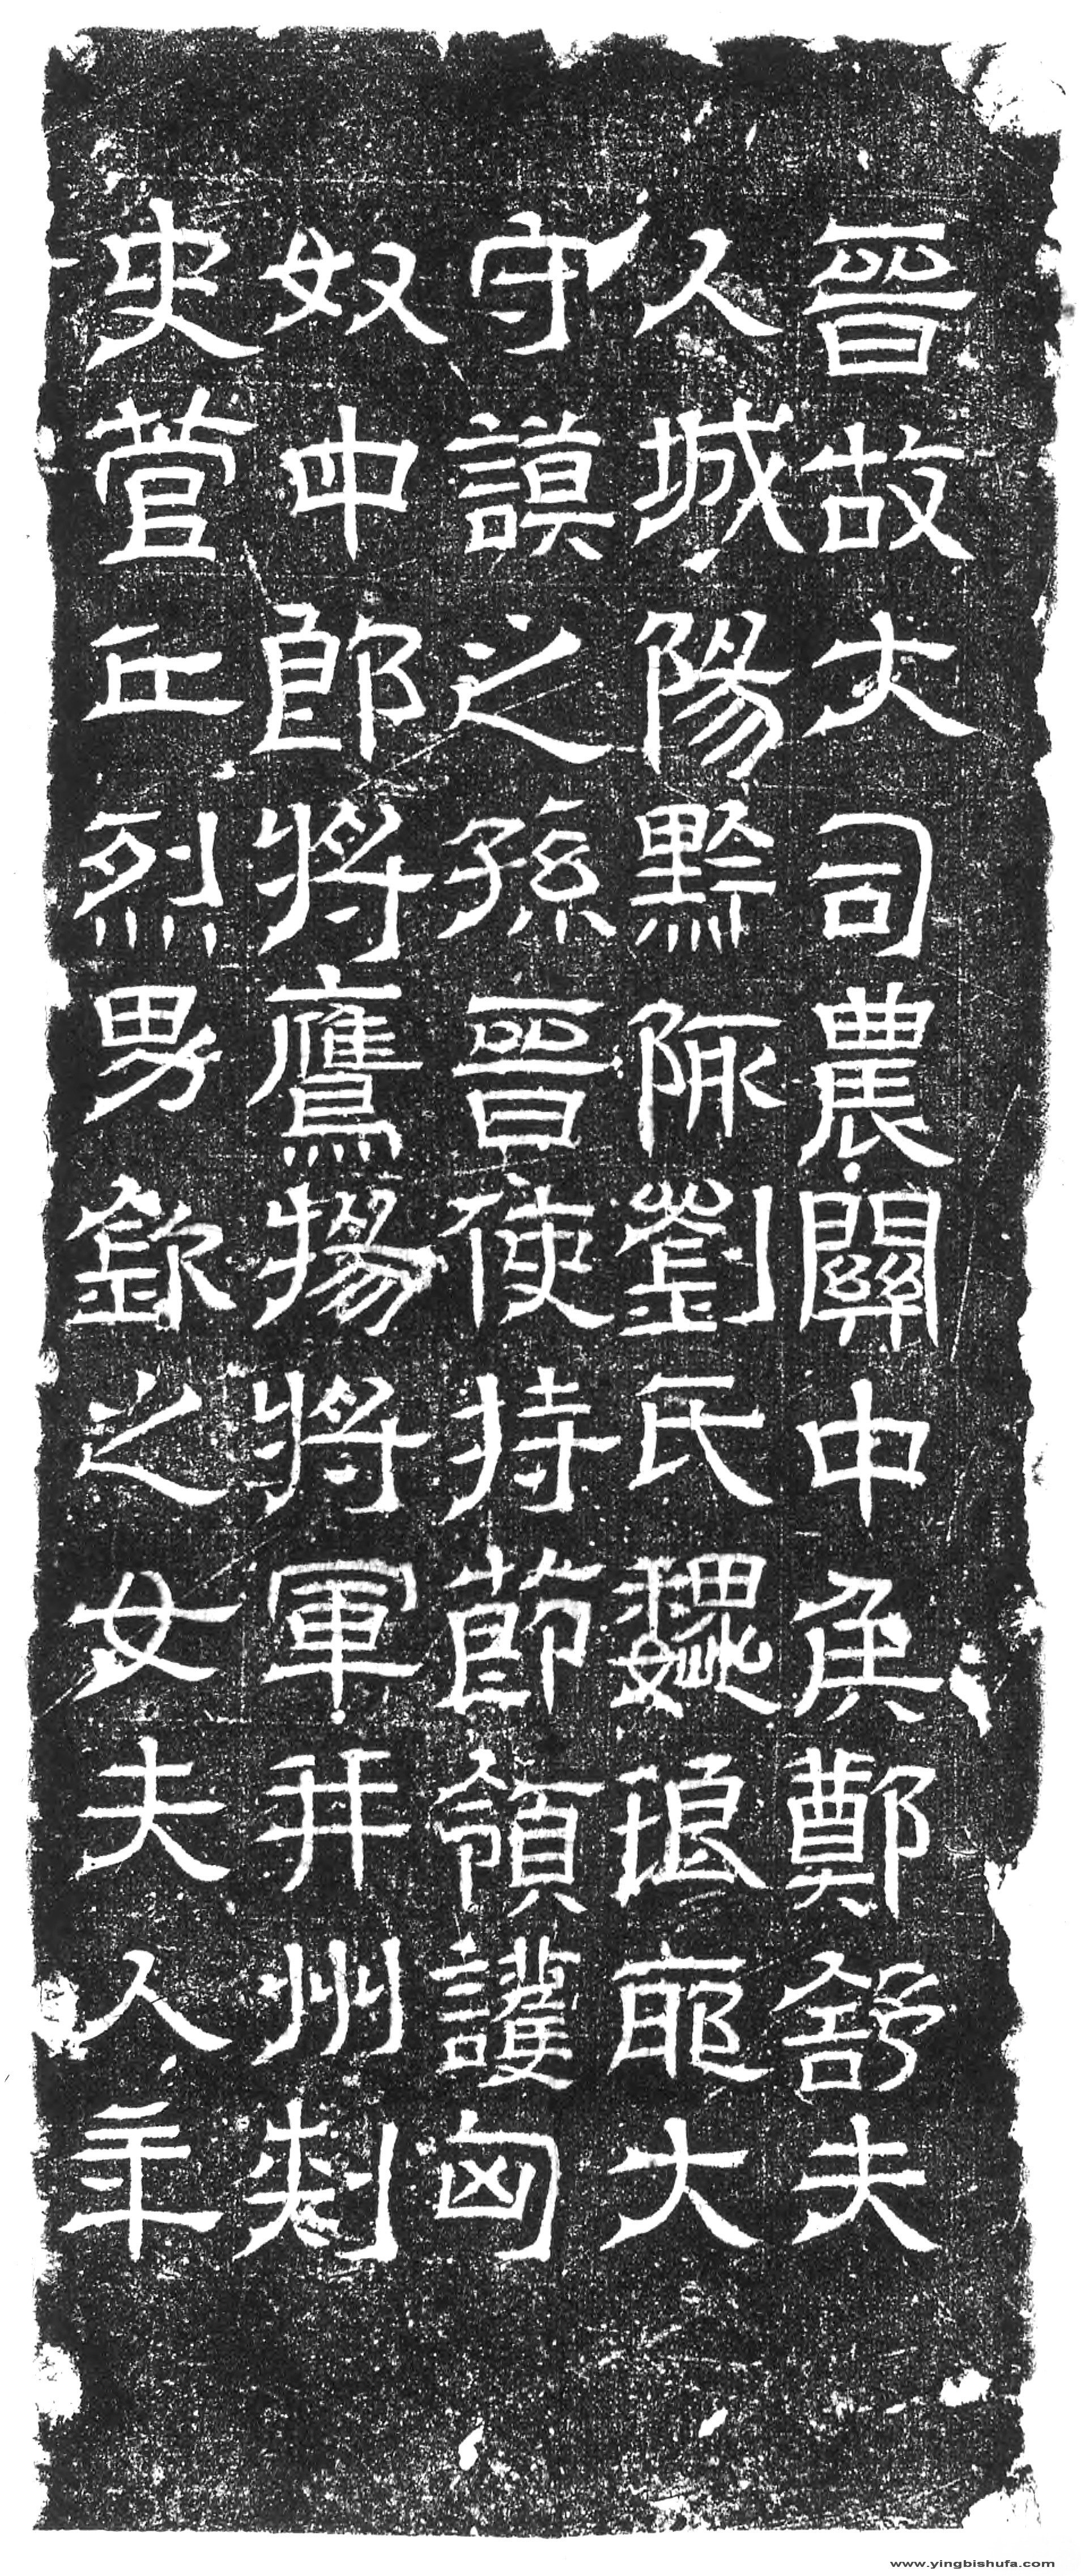 晉故大司農關中侯鄭舒夫
人城陽黔陬劉氏魏琅耶大
守謨之孫晉使持節領護匈
奴中郎將鷹揚將軍并州刺
史菅丘烈男欽之女夫人年
www.yingbishufa.com